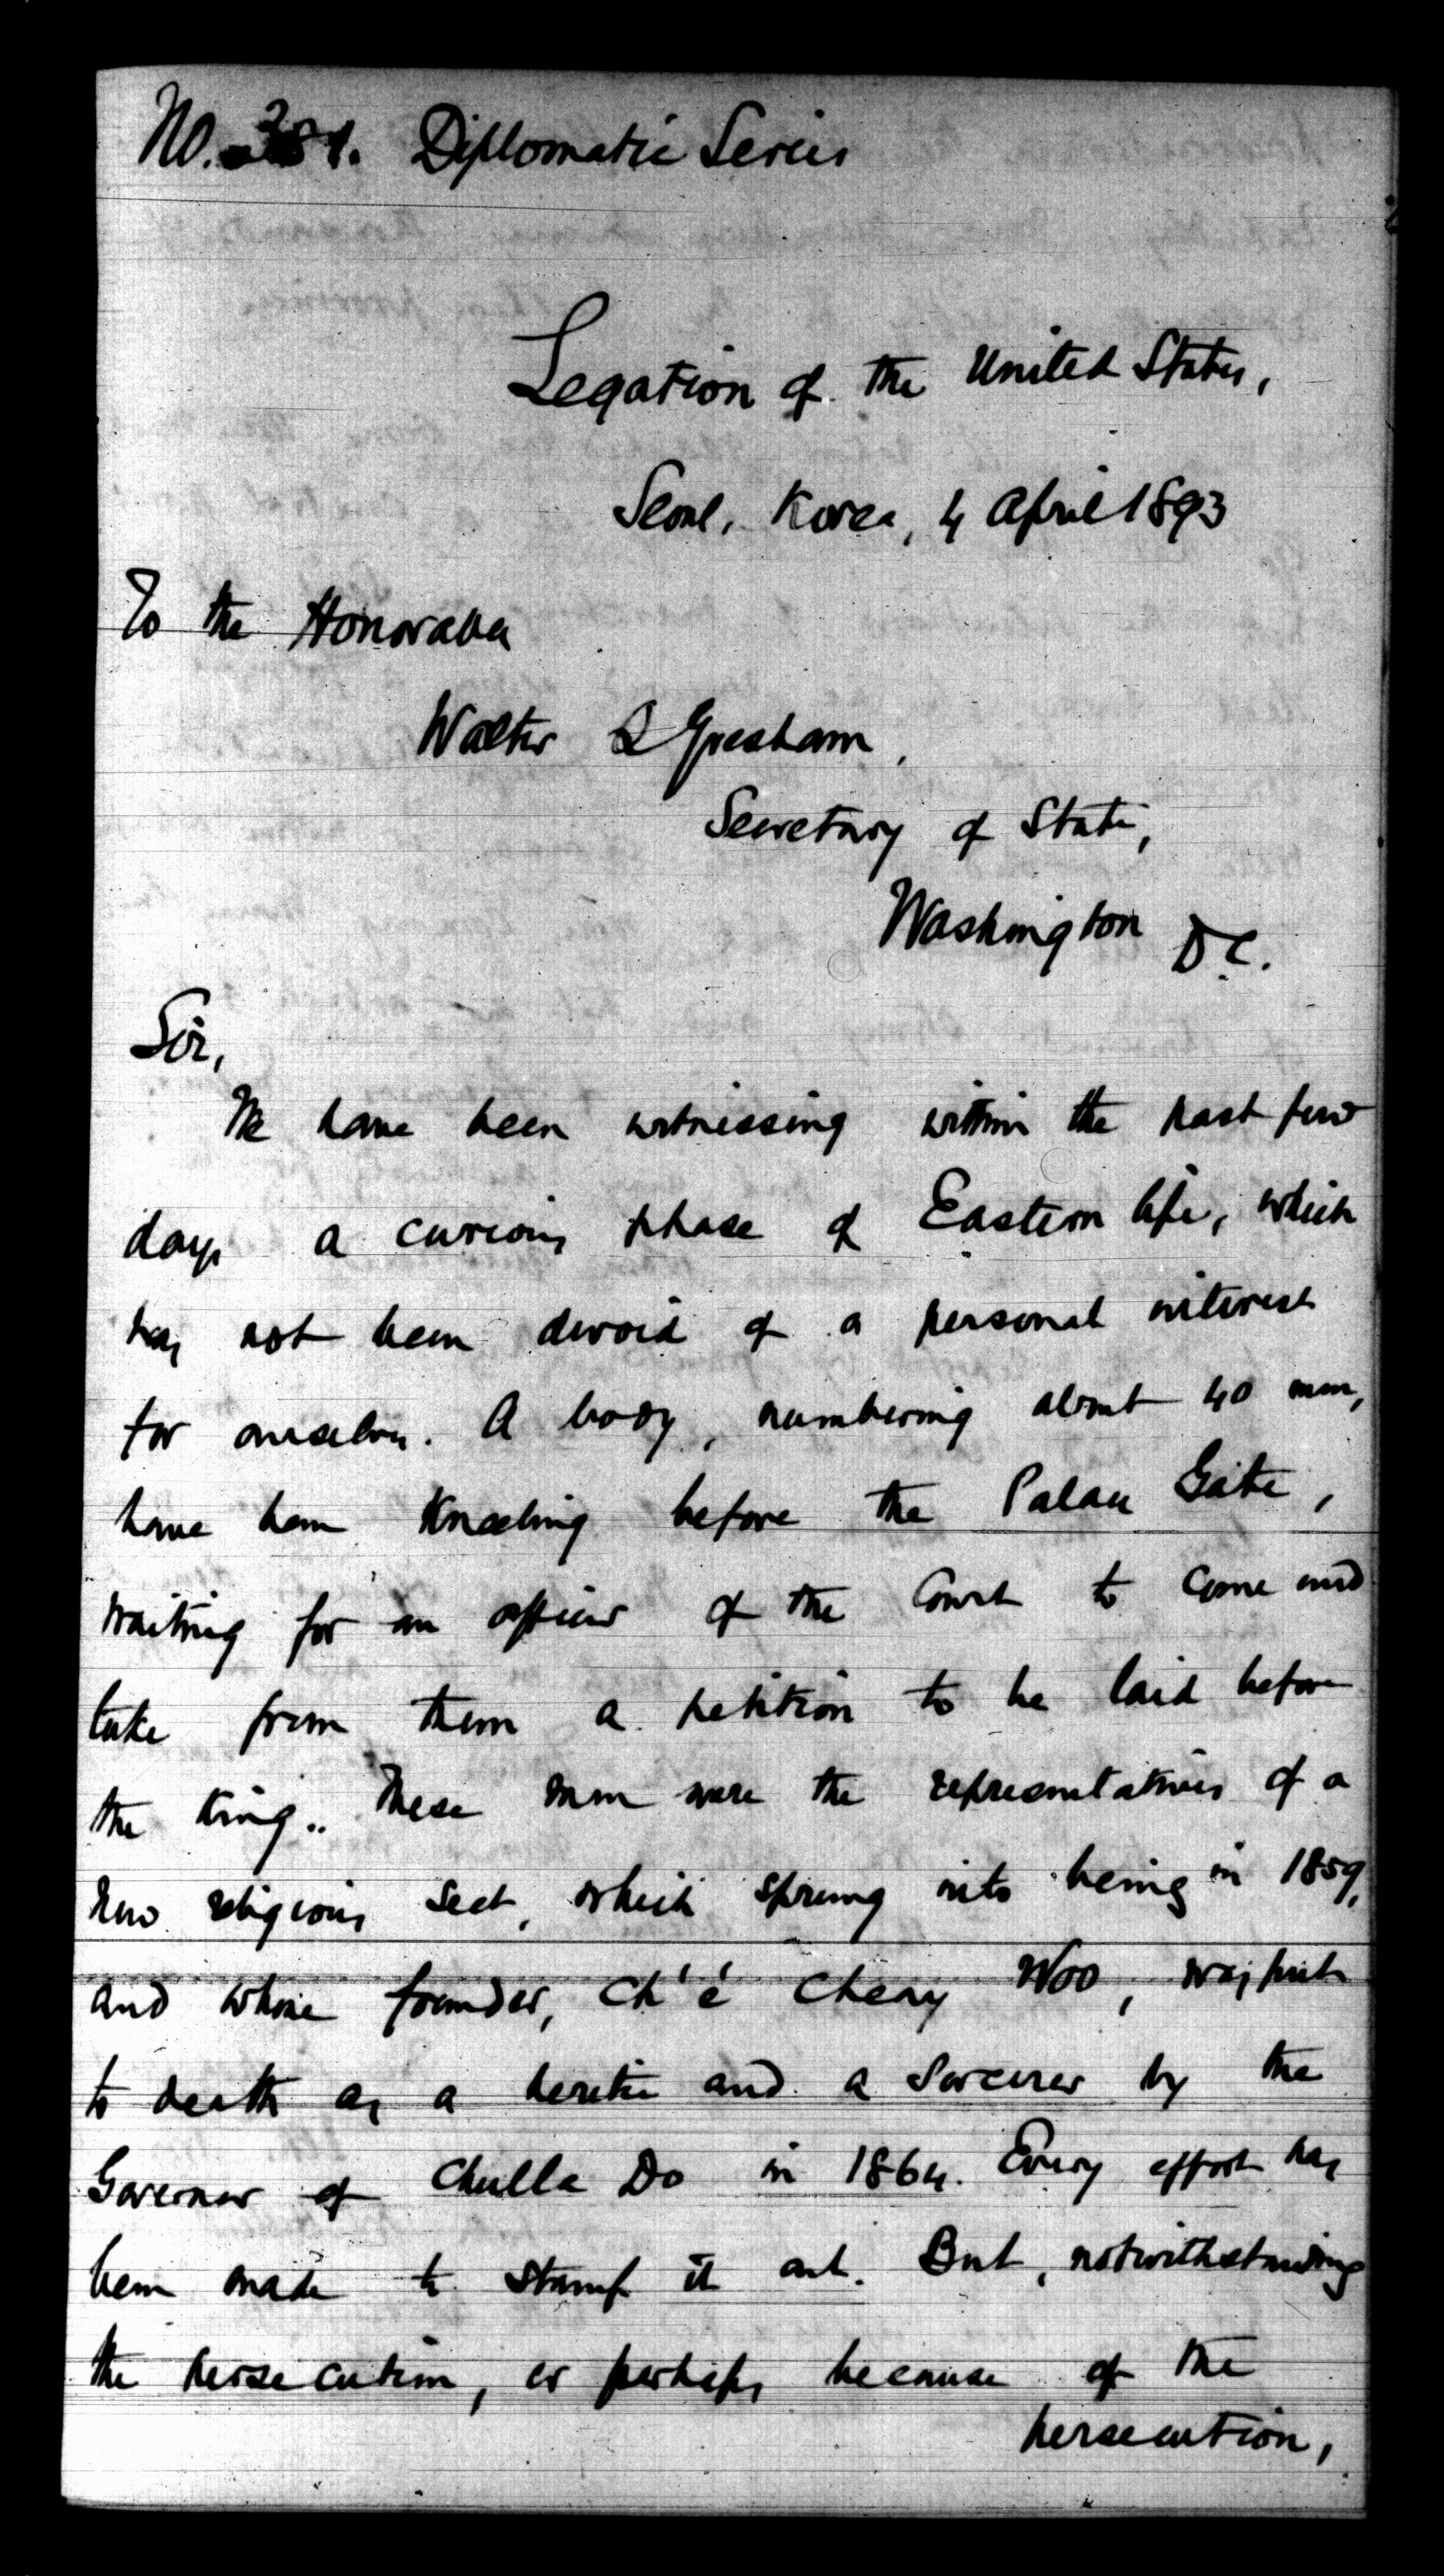 No. 381. Diplomatic Series
Legation of the United States,
Seoul, Korea, 4 April 1893
To the Honorable
Walter Q Gresham,
Secretary of State,
Washington D.C.
Sir,
We have been witnessing within the past few
days a curious phase of Eastern life, which
has not been devoid of a personal interest
for ourselves. A body, numbering about 40 men,
have been kneeling before the Palace Gate,
waiting for an officer of the Court to come and
take from them a petition to be laid before
the King.. These men were the representatives of a
new religious sect, which sprung into being in 1859,
and whose founder, Ch'é Cheay Woo, was put
to death as a heretic and a sorcerer by the
Governor of Chulla Do in 1864. Every effort has
been made to stamp it out. But, notwithstanding
the persecution, or perhaps because of the
persecution,